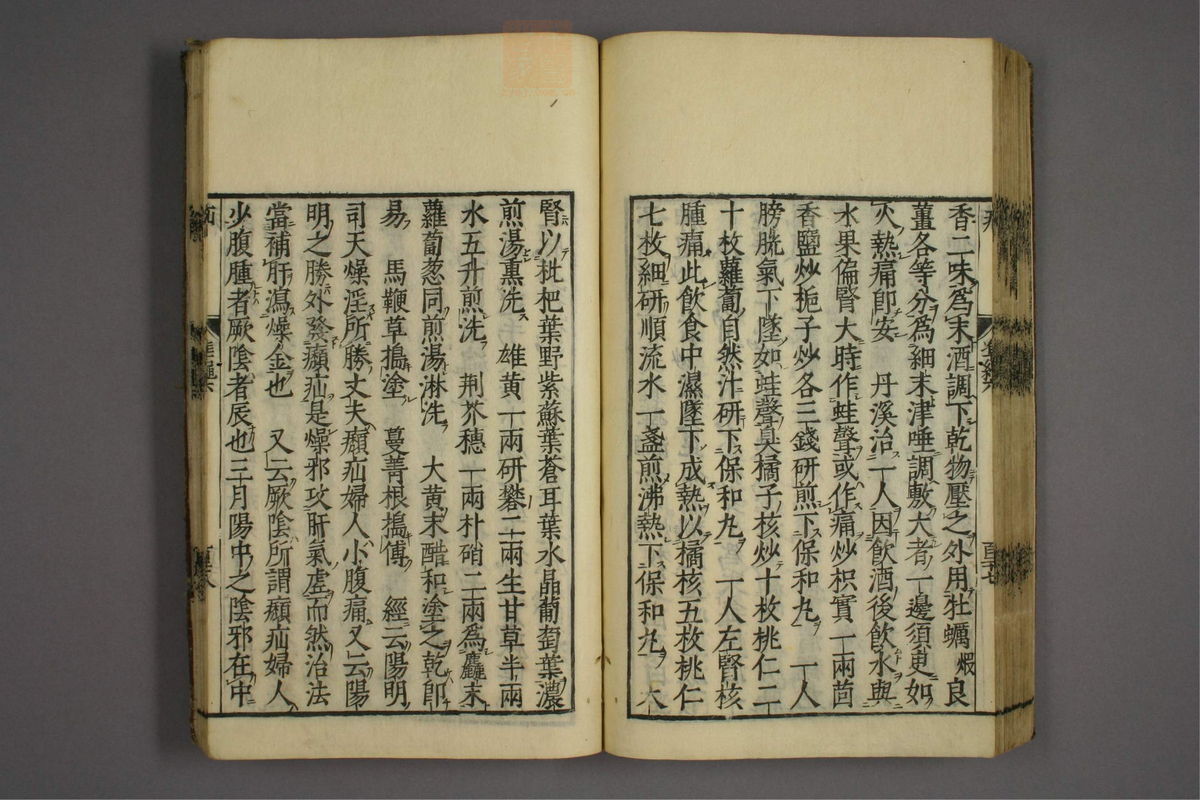 香二味為末酒調下乾物壓之外用牡蠣煆良
薑各等分為細末津唾調敷大者一邊須更如
火熱痛即安　丹溪治一人因飲酒後飲水與
水果偏腎大時作蛙聲或作痛炒枳實一兩茴
香鹽炒梔子炒各三錢研煎下保和丸　一人
膀胱氣下墜如蛙聲臭橘子核炒十枚桃仁二
十枚蘿蔔自然汁研下保和丸　一人左腎核
腫痛此飲食中濕墜下成熱以橘核五枚桃仁
七枚細研順流水一盞煎沸熱下保和丸　大
腎以枇杷葉野紫蘇葉蒼耳葉水晶葡萄葉濃
煎湯熏洗　雄黃一兩研礬二兩生甘草半兩
水五升煎洗　荆芥穗一兩朴硝二兩為麤末
蘿蔔葱同煎湯淋洗　大黃末醋和塗之乾即
易　馬鞭草搗塗　蔓菁根搗傅　經云陽明
司天燥淫所勝丈夫㿗疝婦人小腹痛又云陽
明之勝外發㿗疝是燥邪攻肝氣虛而然治法
當補肝瀉燥金也　又云厥陰所謂㿗疝婦人
少腹腫者厥陰者辰也三月陽中之陰邪在中